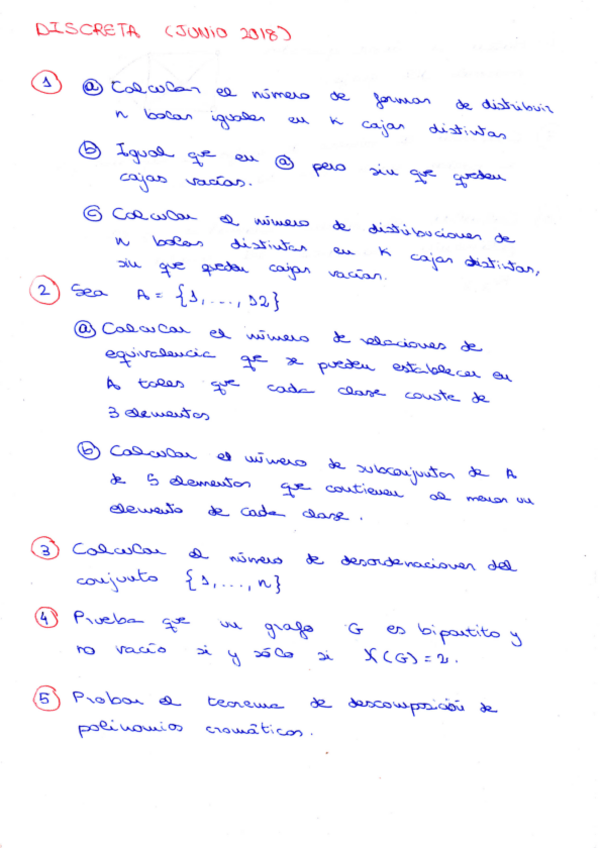 DISCRETA (JUNIO 2018)
1 a Calcular el número de formas de distribuir
n bolas iguales en K cajas distintas
b Igual que en a pero sin que queden
cajas vacías.
c Calcular el número de distribuciones de
n bolas distintas en K cajas distintas,
sin que queden cajas vacías.
2 Sea A = {1,...,12}
a Calcular el número de relaciones de
equivalencia que se pueden establecer en
A tales que cada clase conste de
3 elementos
b Calcular el número de subconjuntos de A
de 5 elementos que contienen al menos un
elemento de cada clase.
3 Calcular el número de desordenaciones del
conjunto {1,...,n}
4 Prueba que un grafo G es bipartito y
no vacío si y sólo si X(G)=2.
5 Probar el teorema de descomposición de
polinomios cromáticos.